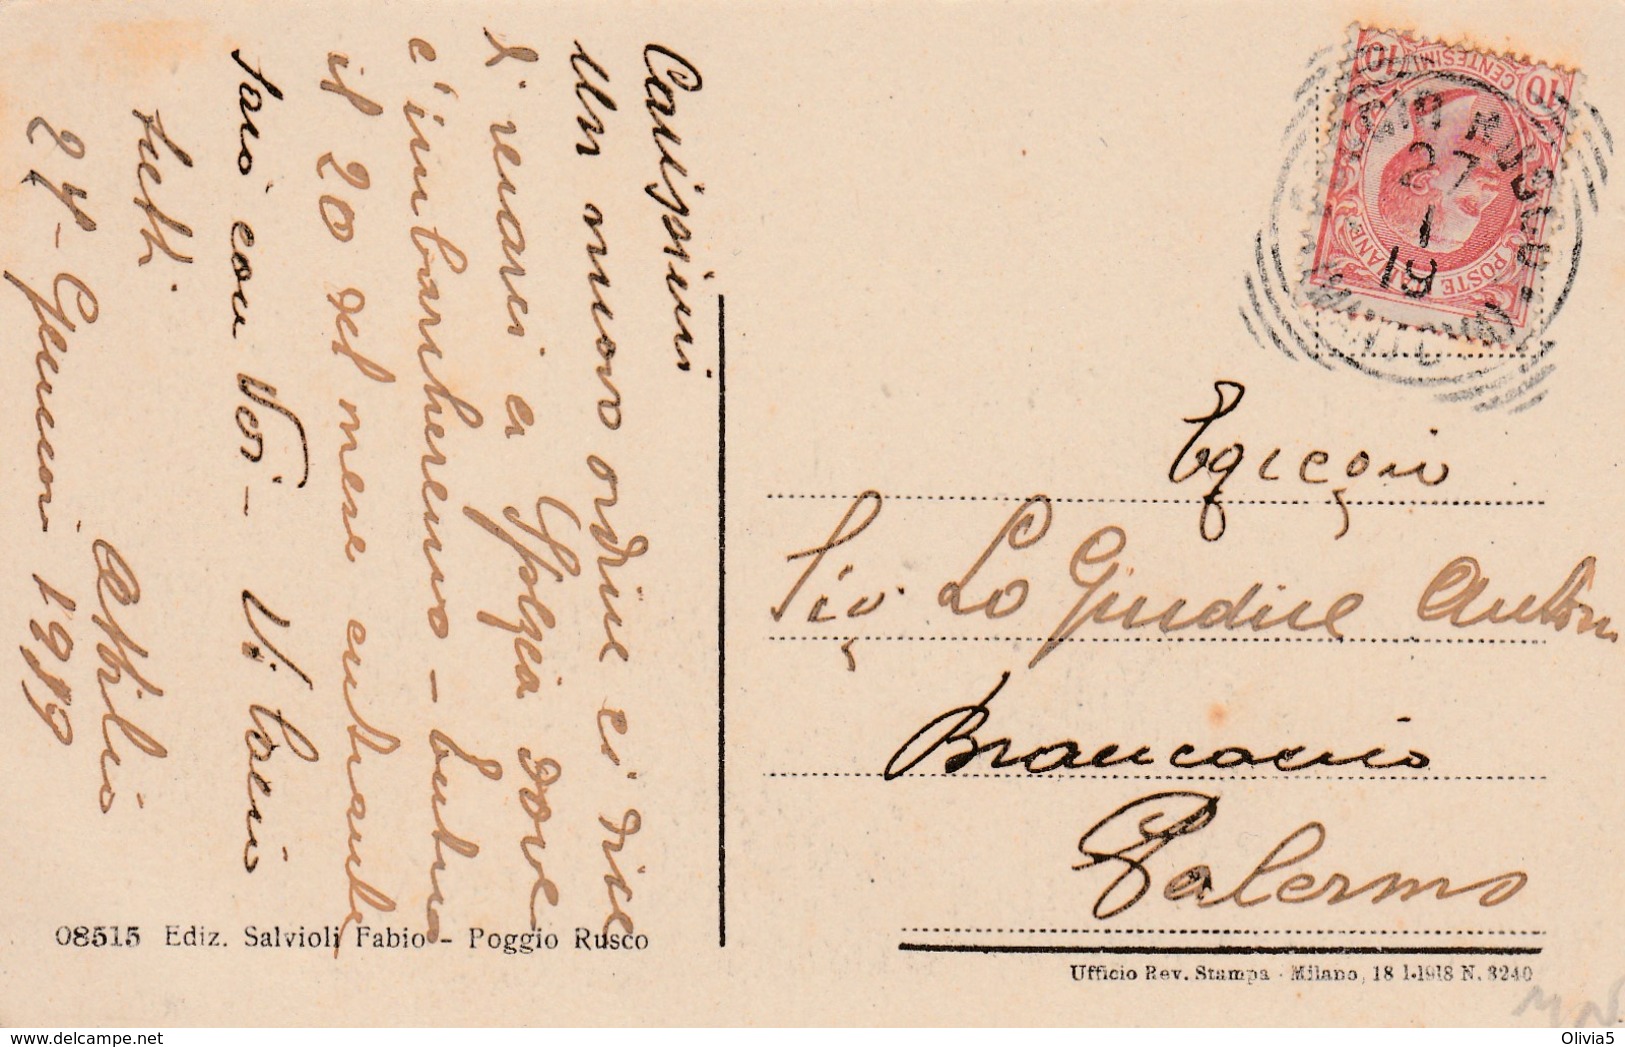 Carissimi
Un nuovo ordine ci dice
di recarci a Spezia dove
c'imbarcheremo - entro
il 20 del mese entrante
sarò con Voi - Vi bacio
tutti
Attilio
27 - Gennaio 1919
08515 Ediz. Salvioli Fabio - Poggio Rusco
10 CENTESIMI 10
POSTE ITALIANE
RUSCO
27
1
19
Sig. Lo Giudice Antoni
Brancaccio
Palermo
Ufficio Rev. Stampa - Milano, 18 1-1918 N. 3240
MN
Olivia5